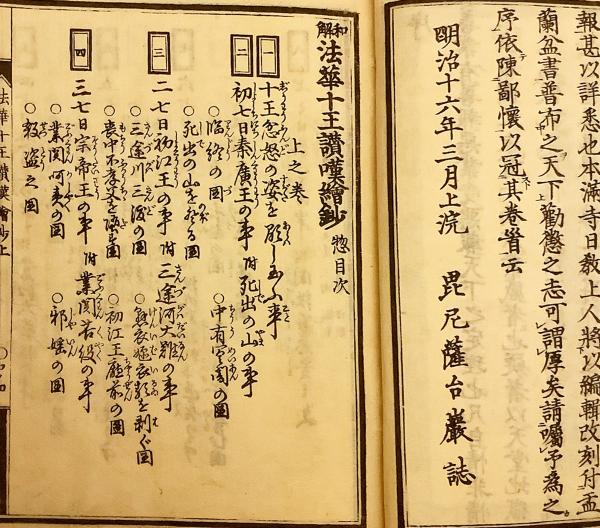 報甚以詳悉也本滿寺日教上人將以編輯改刻付盂
蘭盆書普布之天下勸懲之志可謂厚矣請囑予為之
序依陳鄙懷以冠其卷首云
明治十六年三月上浣 毘尼薩台巖誌
和解 法華十王讚嘆繪鈔 惣目次
上之卷
一 十王忿怒の姿を顕し玉ふ事
二 初七日秦廣王の事 附 死出の山の事
○臨終の圖 ○中有冥闇の圖
○死出の山を登る圖
三 二七日初江王の事 附 三途河大難の事
○三途川三渡の圖 ○懸衣嫗衣類を剥ぐ圖
○喪中不孝 の圖 ○初江王廳前の圖
四 三七日宗帝王の事 附 業関苦役の事
○業関呵責の圖 ○邪婬の圖
○殺盗之圖
法華十王讚嘆繪鈔上